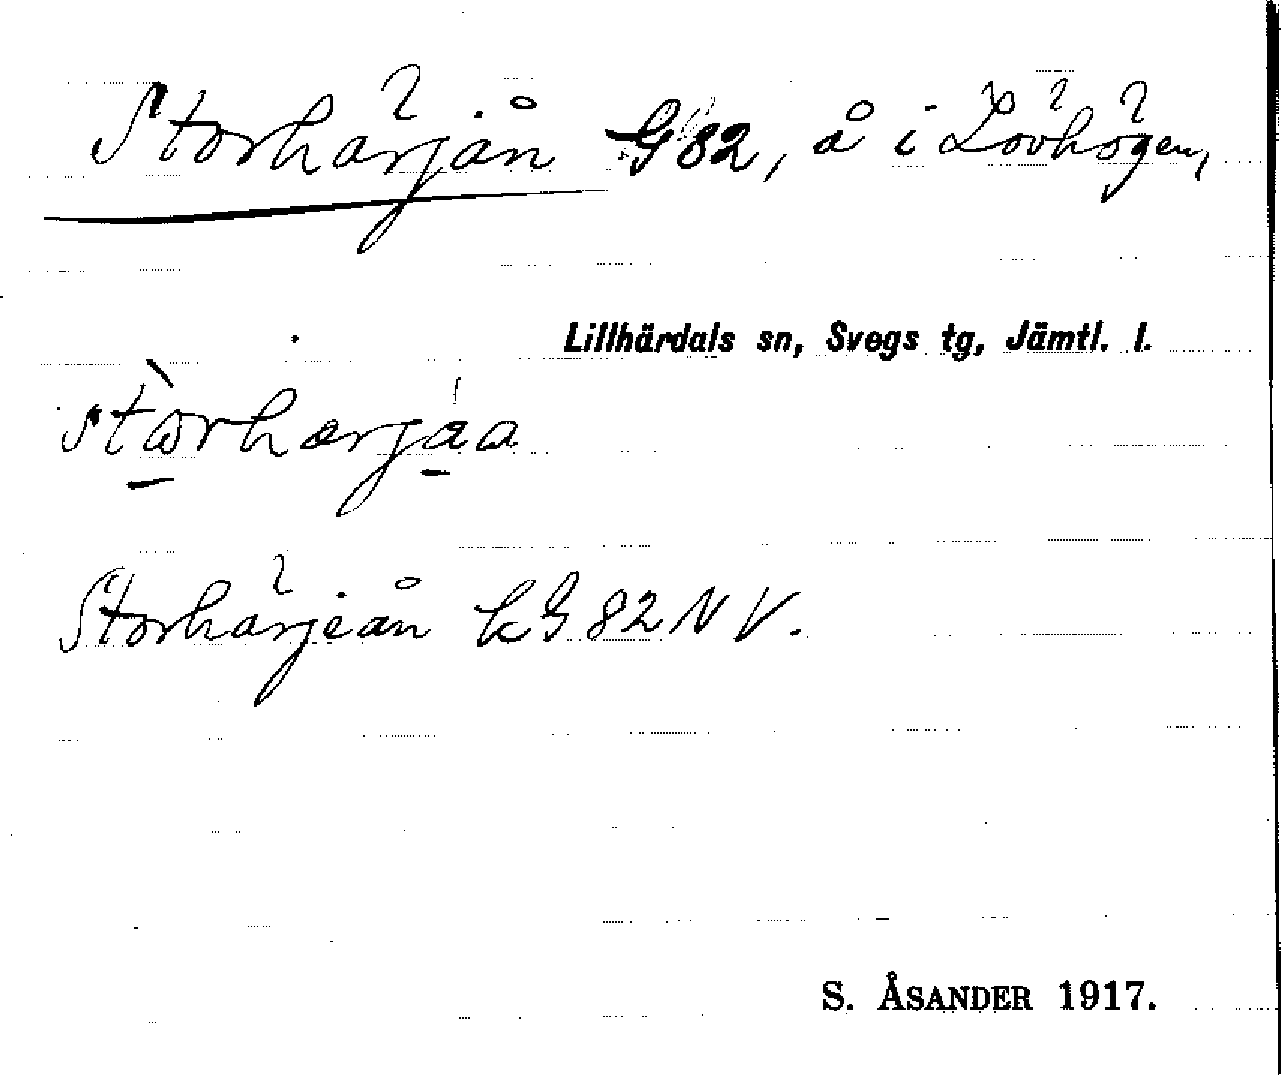 Storhärjån G 82, å i Lövhögen,
Lillhärdals sn, Svegs tg, Jämtl. l.
stòrhærjáa
Storhärjeån kG 82 NV.
S. ÅSANDER 1917.